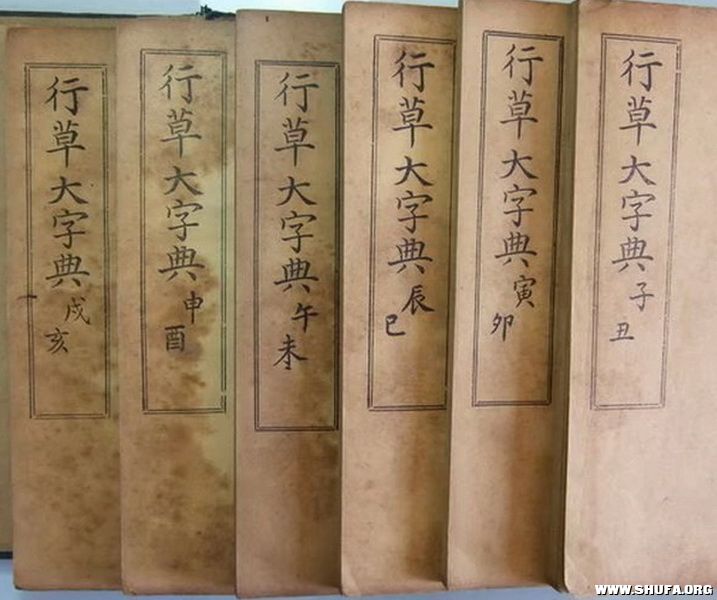 行草大字典子丑
行草大字典寅卯
行草大字典辰巳
行草大字典午未
行草大字典申酉
行草大字典戌亥
WWW.SHUFA.ORG